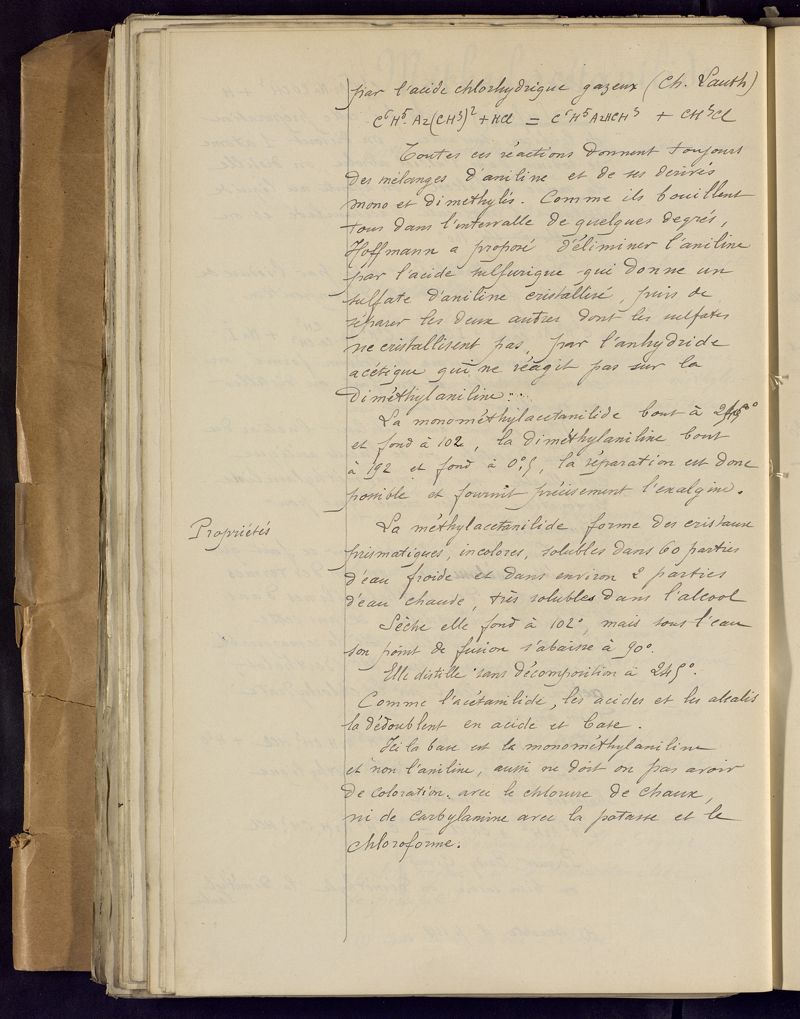 par l'acide chlorhydrique gazeux (Ch. Lauth)
C⁶H⁵. Az(CH³)² + HCl = C⁶H⁵AzHCH³ + CH³Cl
Toutes ces réactions donnent toujours
des mélanges d'aniline et de ses dérivés
mono et dimethylés. Comme ils bouillent
tous dans l'intervalle de quelques degrés,
Hoffmann a proposé d'éliminer l'aniline
par l'acide sulfurique qui donne un
sulfate d'aniline cristallisé, puis de
séparer les deux autres dont les sulfates
ne cristallisent pas, par l'anhydride
acétique qui ne réagit pas sur la
diméthylaniline:
La monométhylacetanilide bout à 245°
et fond à 102, la diméthylaniline bout
à 192 et fond à 0°,5, la séparation est donc
possible et fournit précisement l'exalgine.
Propriétés
La méthylacetanilide forme des cristaux
prismatiques, incolores, solubles dans 60 parties
d'eau froide et dans environ 2 parties
d'eau chaude, très solubles dans l'alcool
Sèche elle fond à 102°, mais sous l'eau
son point de fusion s'abaisse à 90°.
Elle distille sans décomposition à 245°.
Comme l'acétanilide, les acides et les alcalis
la dédoublent en acide et base.
Ici la base est la monométhylaniline
et non l'aniline, aussi ne doit on pas avoir
de coloration avec le chlorure de chaux,
ni de carbylamine avec la potasse et le
chloroforme.